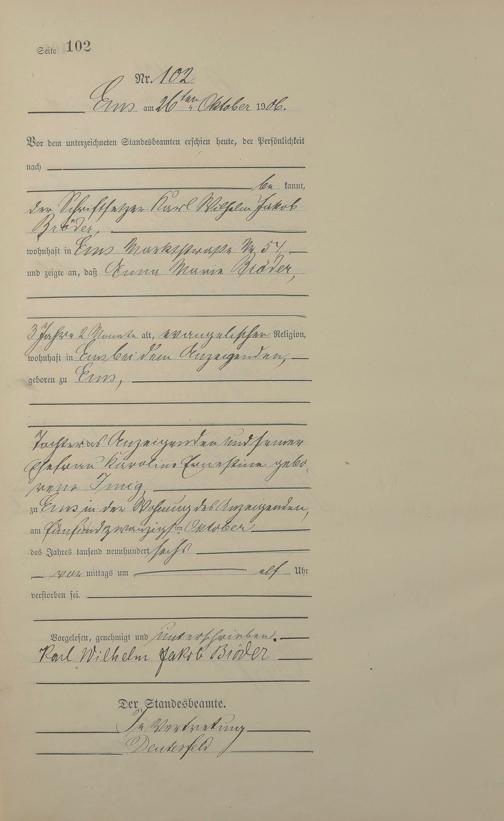 Seite 102
Nr. 102
Ems am 26ten Oktober 1906.
Vor dem unterzeichneten Standesbeamten erschien heute, der Persönlichkeit
nach
be kannt,
der Schriftsetzer Karl Wilhelm Jakob
Bröder,
wohnhaft in Ems Marktstraße No 57,
und zeigte an, daß Anna Marie Bröder,
3 Jahre 2 Monate alt, evangelischer Religion,
wohnhaft in Ems bei dem Anzeigenden,
geboren zu Ems,
Tochter des Anzeigenden und seiner
Ehefrau Karoline Ernestine gebo-
rene Imig,
zu Ems in der Wohnung des Anzeigenden,
am fünfundzwanzigsten Oktober
des Jahres tausend neunhundert sechs
vor mittags um elf Uhr
verstorben sei.
Vorgelesen, genehmigt und unterschrieben.
Karl Wilhelm Jakob Bröder
Der Standesbeamte.
In Vertretung